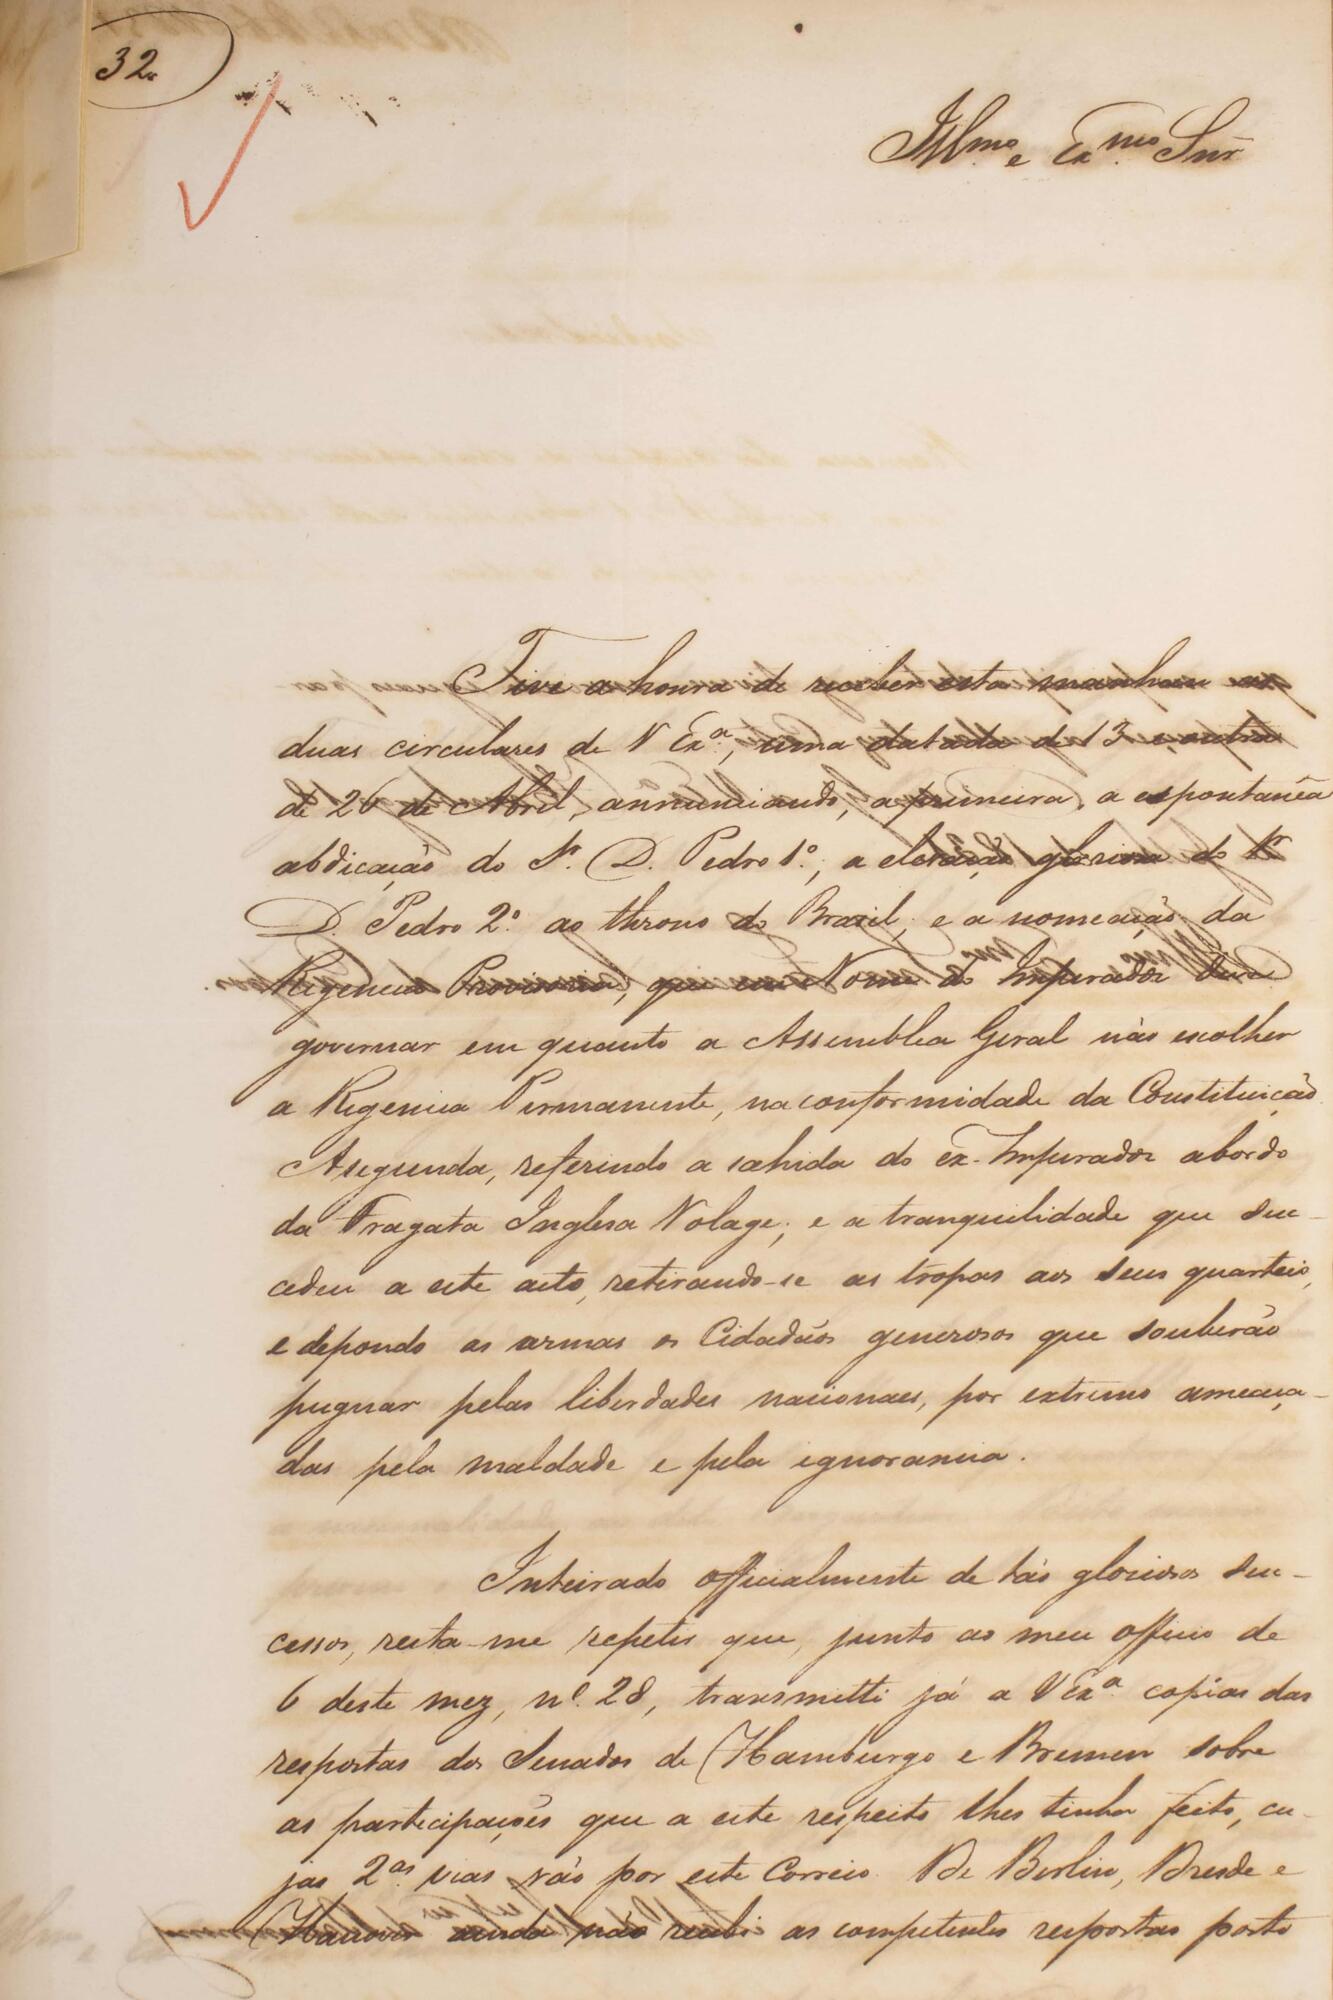 32.
Illmo. e Exmo. Snr
Tive a honra de receber esta manhan as
duas circulares de V Exa., uma datada de 13 e outra
de 26 de Abril, annunciando, a primeira, a espontanêa
abdicação do Sr. D. Pedro 1º., a elevação gloriosa do Sr
D. Pedro 2º. ao throno do Brazil, e a nomeação da
Regencia Provisoria, que em Nome do Imperador deve
governar em quanto a Assemblea Geral não escolher
a Regencia Permanente, na conformidade da Constituição.
A segunda, referindo a sahida do ex-Imperador abordo
da Fragata Inglesa Volage; e a tranquilidade que suc-
cedeu a este acto, retirando-se as tropas aos seus quarteis,
e depondo as armas os Cidadãos generosos que souberão
pugnar pelas liberdades nacionaes, por extremo ameaça-
das pela maldade e pela ignorancia.
Inteirado officialmente de tão gloriosos suc-
cessos, resta-me repetir que, junto ao meu officio de
6 deste mez, nº. 28, transmitti já a V Exa. copias das
respostas dos Senados de Hamburgo e Bremen sobre
as participações que a este respeito lhes tinha feito, cu-
jas 2as. vias vão por este Correio. De Berlin, Dresde e
Hanover ainda não recebi as competentes respostas porto